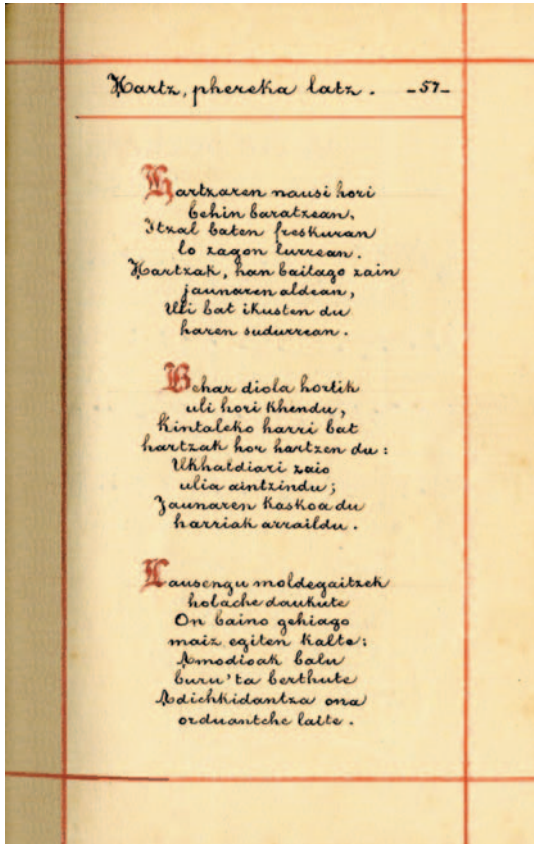 Hartz, phereka latz. -57-
Hartzaren nausi hori
behin baratzean,
Itzal baten freskuran
lo zagon lurrean.
Hartzak, han bailago zain
jaunaren aldean,
Uli bat ikusten du
haren sudurrean.
Behar diola hortik
uli hori khendu,
Kintaleko harri bat
hartzak hor hartzen du:
Ukhaldiari zaio
ulia aintzindu;
Jaunaren kaskoa du
harriak arraildu.
Lausengu moldegaitzek
holache daukute
On baino gehiago
maiz egiten kalte:
Amodioak balu
buru'ta berthute
Adichkidantza ona
orduantche laite.